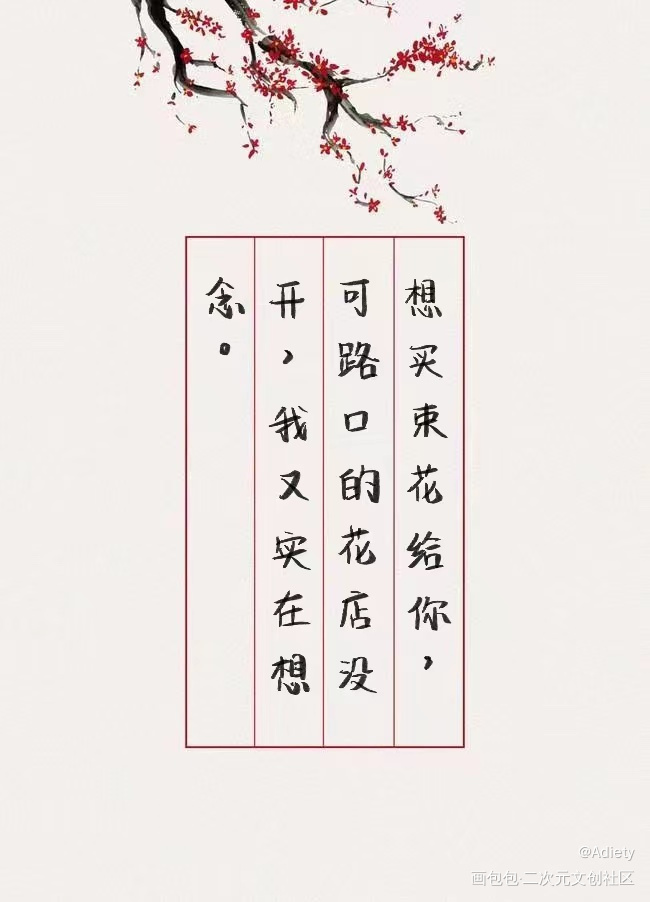 想买束花给你，
可路口的花店没
开，我又实在想
念。
@Adiety
画包包·二次元文创社区